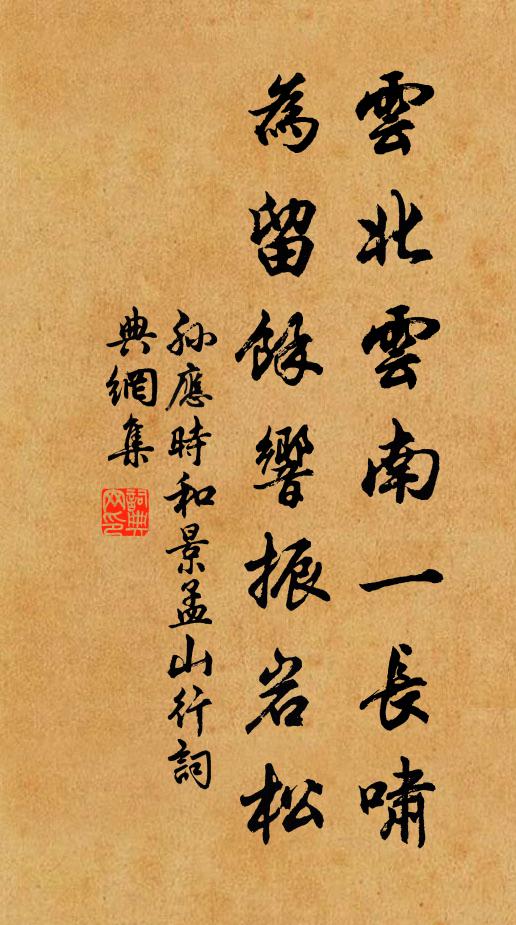 雲北雲南一長嘯
為留餘響振岩松
孫應時和景孟山行詞
典網集
詞典网印